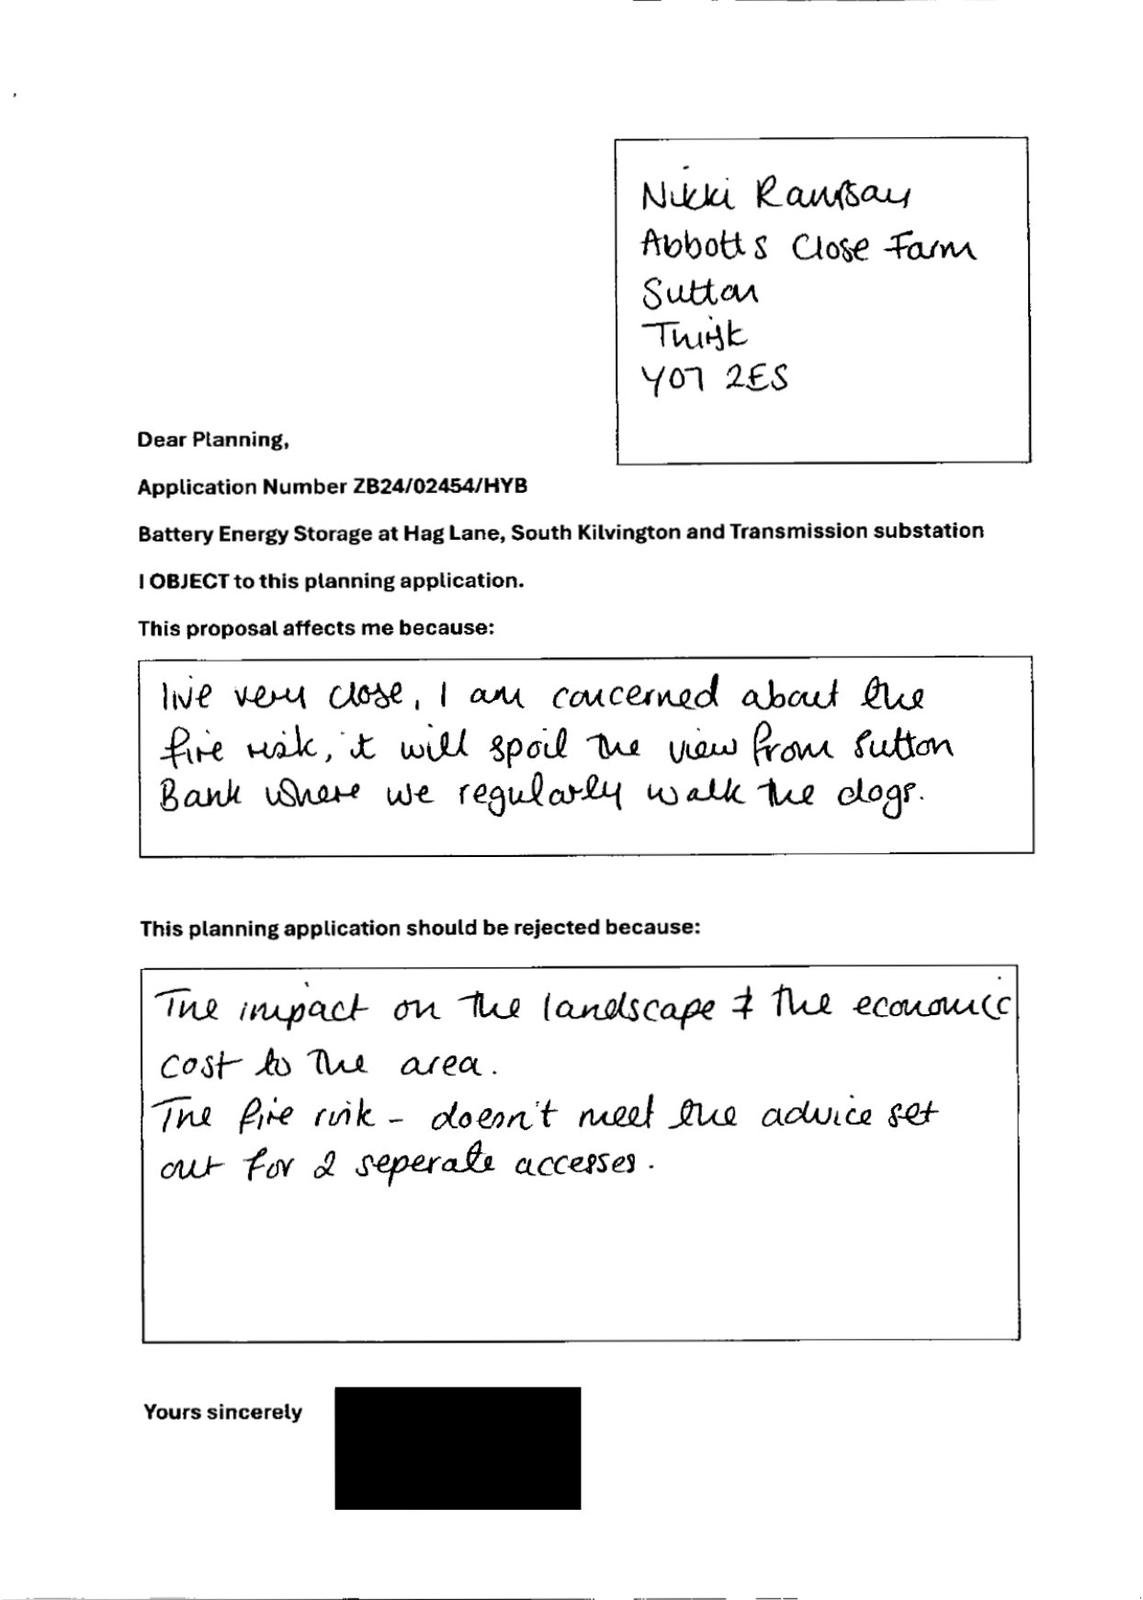 Nikki Ramsay
Abbotts Close Farm
Sutton
Thirsk
YO7 2ES
Dear Planning,
Application Number ZB24/02454/HYB
Battery Energy Storage at Hag Lane, South Kilvington and Transmission substation
I OBJECT to this planning application.
This proposal affects me because:
live very close, I am concerned about the
fire risk, it will spoil the view from Sutton
Bank where we regularly walk the dogs.
This planning application should be rejected because:
The impact on the landscape & the economic
cost to the area.
The fire risk - doesn't meet the advice set
out for 2 seperate accesses.
Yours sincerely